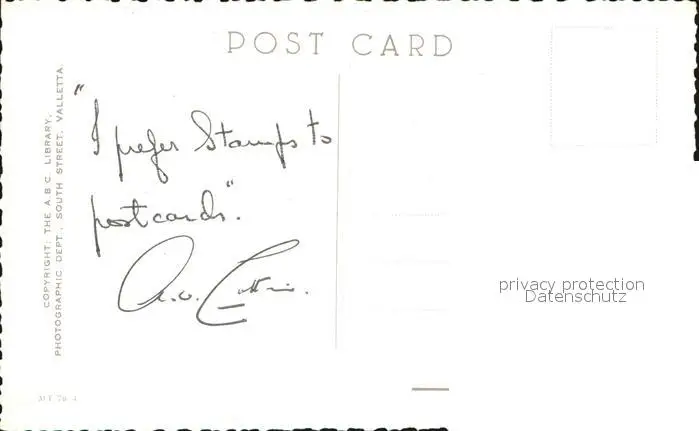 POST CARD
COPYRIGHT: THE A.B.C. LIBRARY,
PHOTOGRAPHIC DEPT., SOUTH STREET, VALLETTA.
"I prefer Stamps to
postcards".
privacy protection
Datenschutz